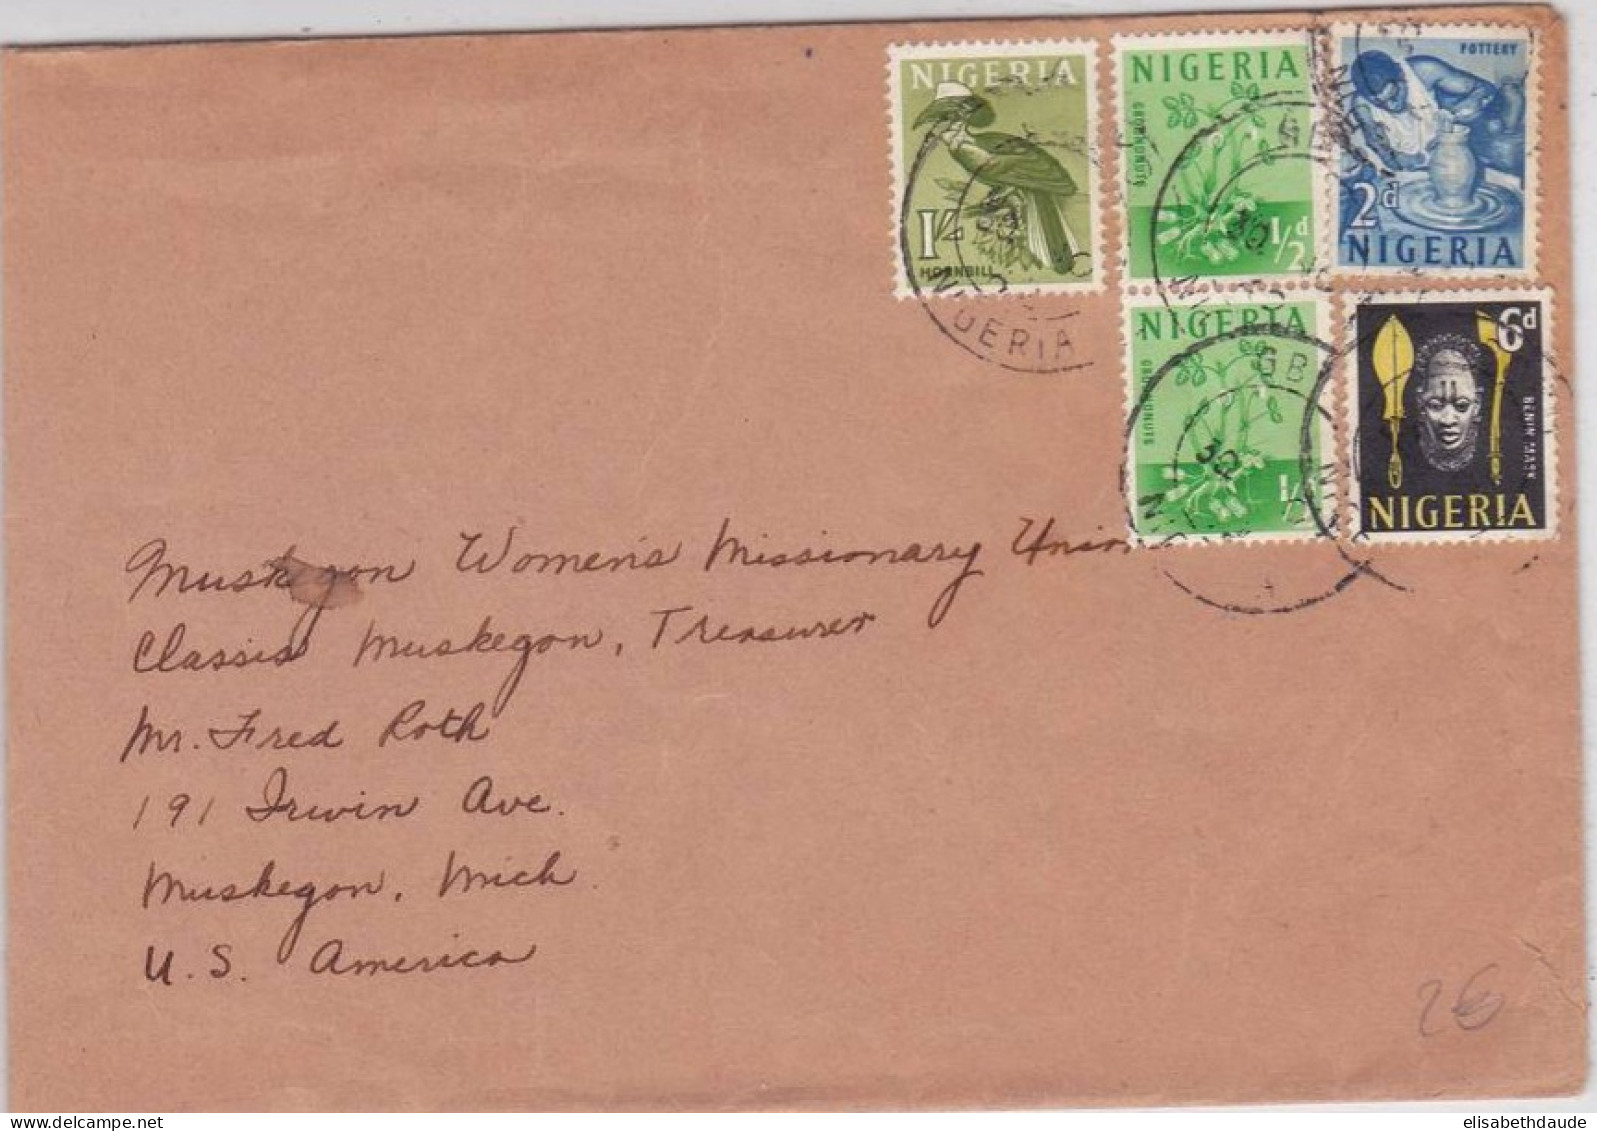 NIGERIA
1/-
HORNBILL
NIGERIA
GROUNDNUTS
1/2d
POTTERY
2d
NIGERIA
NIGERIA
GROUNDNUTS
1/2
6d
BENIN MASK
NIGERIA
NIGERIA
30
GB
30
Muskegon Women's Missionary Union
Classis Muskegon, Treasurer
Mr. Fred Roth
191 Irwin Ave.
Muskegon, Mich.
U.S. America
2€
elisabethdaude